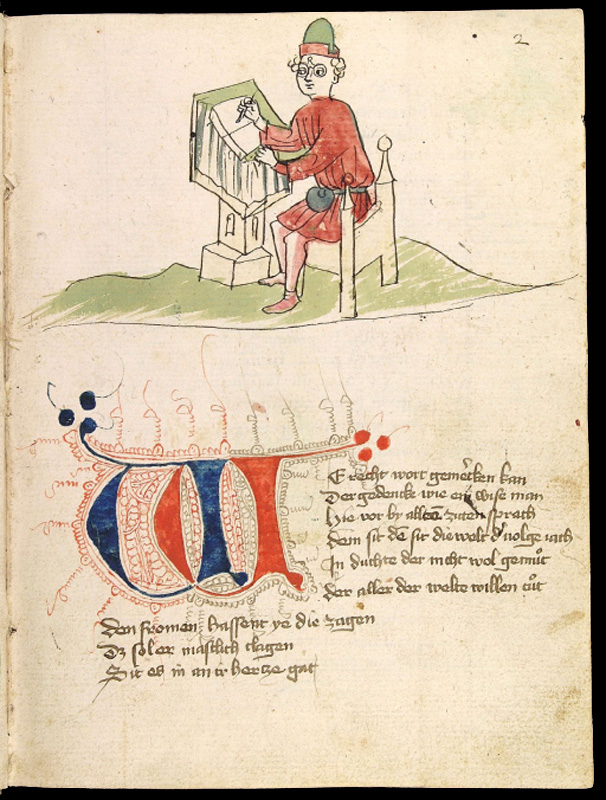 2
WE recht wort gemercken kan
Der gedencke wie ein wise man
Hie vor by alten ziten sprach
Dem sit de sit die welt d' volge iach
In duchte der nicht wol gemuͦt
der aller der welte willen tuͦt
den fromen hassent ye die zagen
Dz sol er mäslich clagen
Sit es in an ir hertze gat